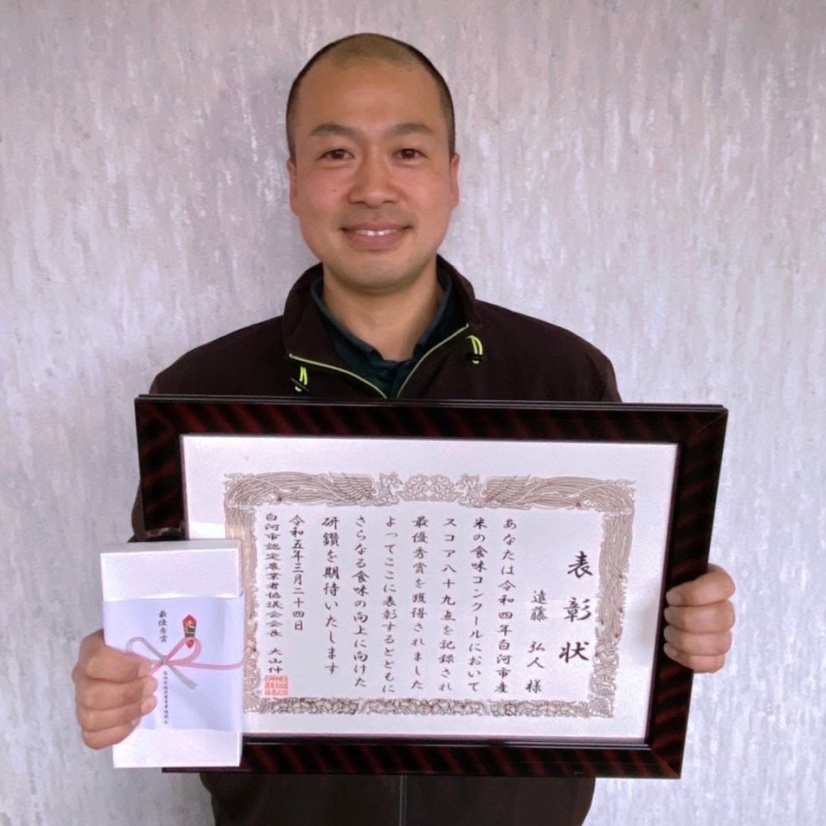 表彰状
遠藤 弘人 様
あなたは令和四年白河市産
米の食味コンクールにおいて
スコア八十九点を記録され
最優秀賞を獲得されました
よってここに表彰するとともに
さらなる食味の向上に向けた
研鑽を期待いたします
令和五年三月二十四日
白河市認定農業者協議会会長 大山伸
最優秀賞
白河市認定農業者協議会